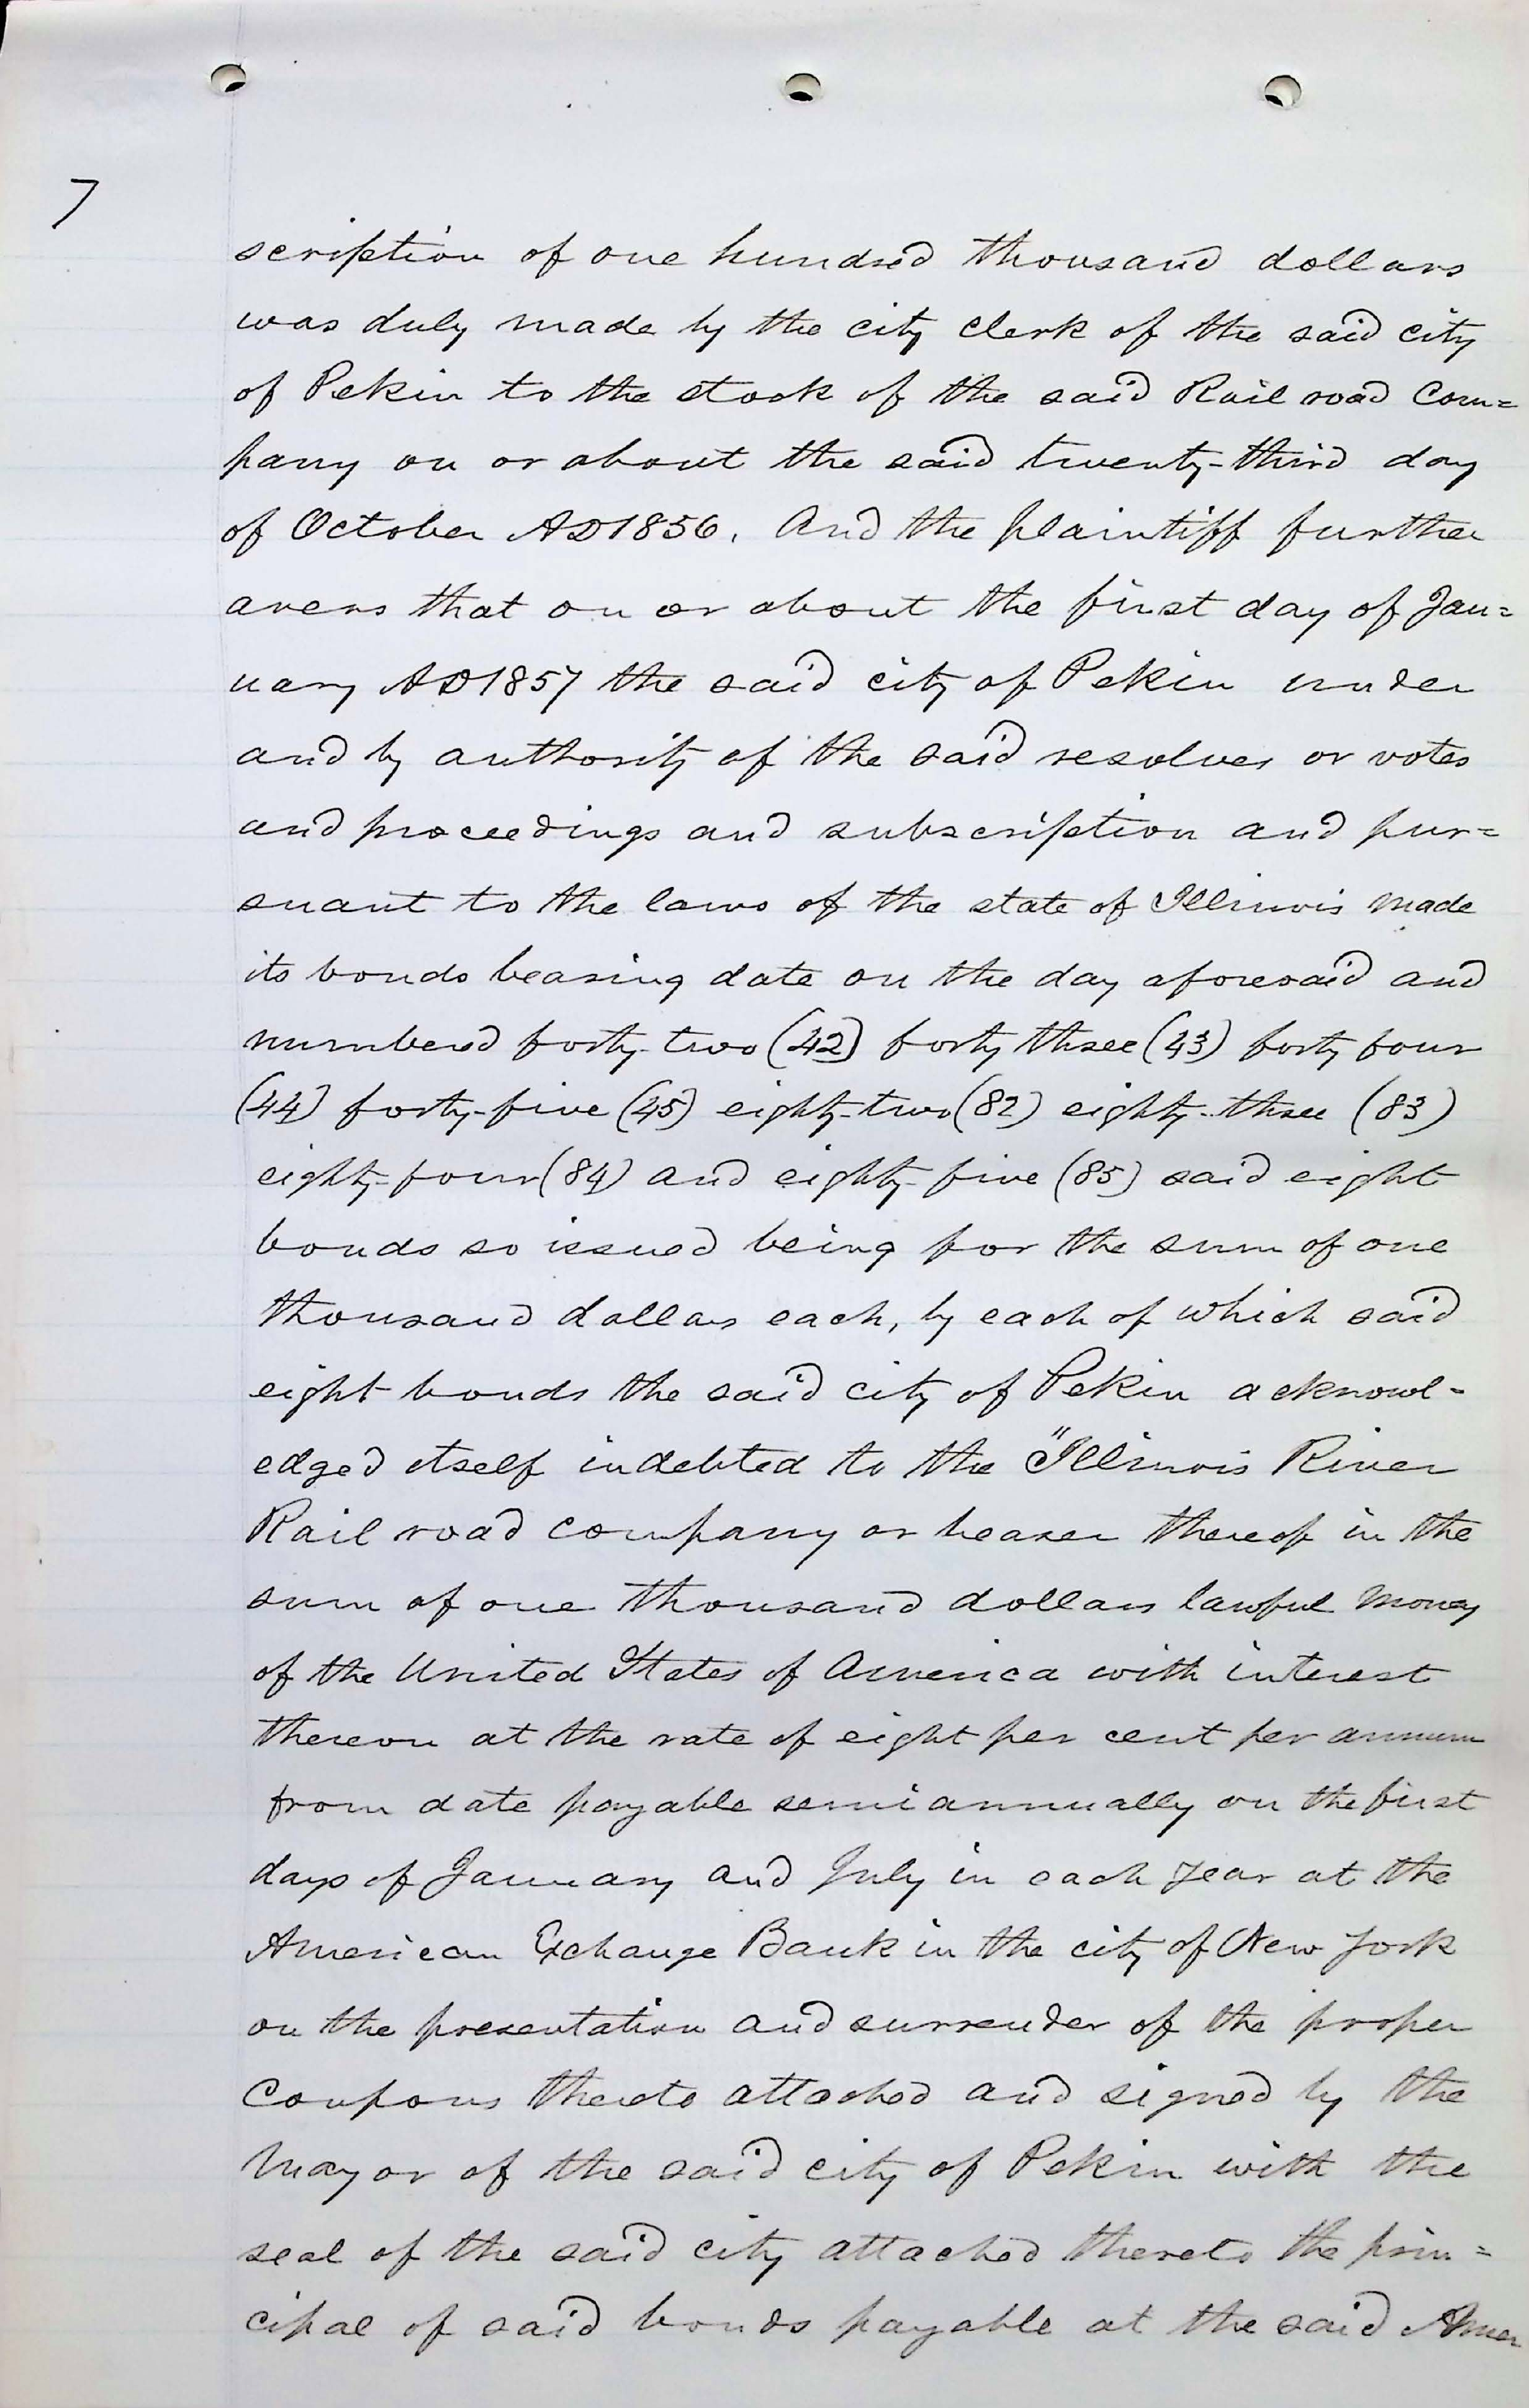 7
scription of one hundred thousand dollars
was duly made by the city clerk of the said city
of Pekin to the stock of the said Rail road Com=
pany on or about the said twenty-third day
of October AD1856. And the plaintiff further
avers that on or about the first day of Jan=
uary AD1857 the said city of Pekin under
and by authority of the said resolves or votes
and proceedings and subscription and pur=
suant to the laws of the state of Illinois made
its bonds bearing date on the day aforesaid and
numbered forty-two (42) forty three (43) forty four
(44) forty-five (45) eighty-two (82) eighty-three (83)
eighty-four (84) and eighty-five (85) said eight
bonds so issued being for the sum of one
thousand dollars each, by each of which said
eight bonds the said city of Pekin acknowl-
edged itself indebted to the "Illinois River
Rail road company or bearer thereof in the
sum of one thousand dollars lawful money
of the United States of America with interest
thereon at the rate of eight per cent per annum
from date payable semi annually on the first
days of January and July in each year at the
American Exchange Bank in the city of New York
on the presentation and surrender of the proper
Coupons thereto attached and signed by the
Mayor of the said city of Pekin with the
seal of the said city attached thereto the prin=
cipal of said bonds payable at the said Amer